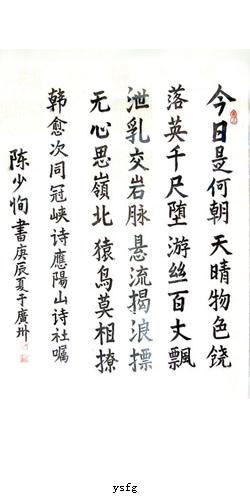 今日是何朝天晴物色饶
落英千尺堕游丝百丈飘
泄乳交岩脉悬流揭浪摽
无心思嶺北猿鸟莫相撩
韩愈次同冠峡诗應陽山诗社嘱
陈少恂書庚辰夏于廣州
ysfg